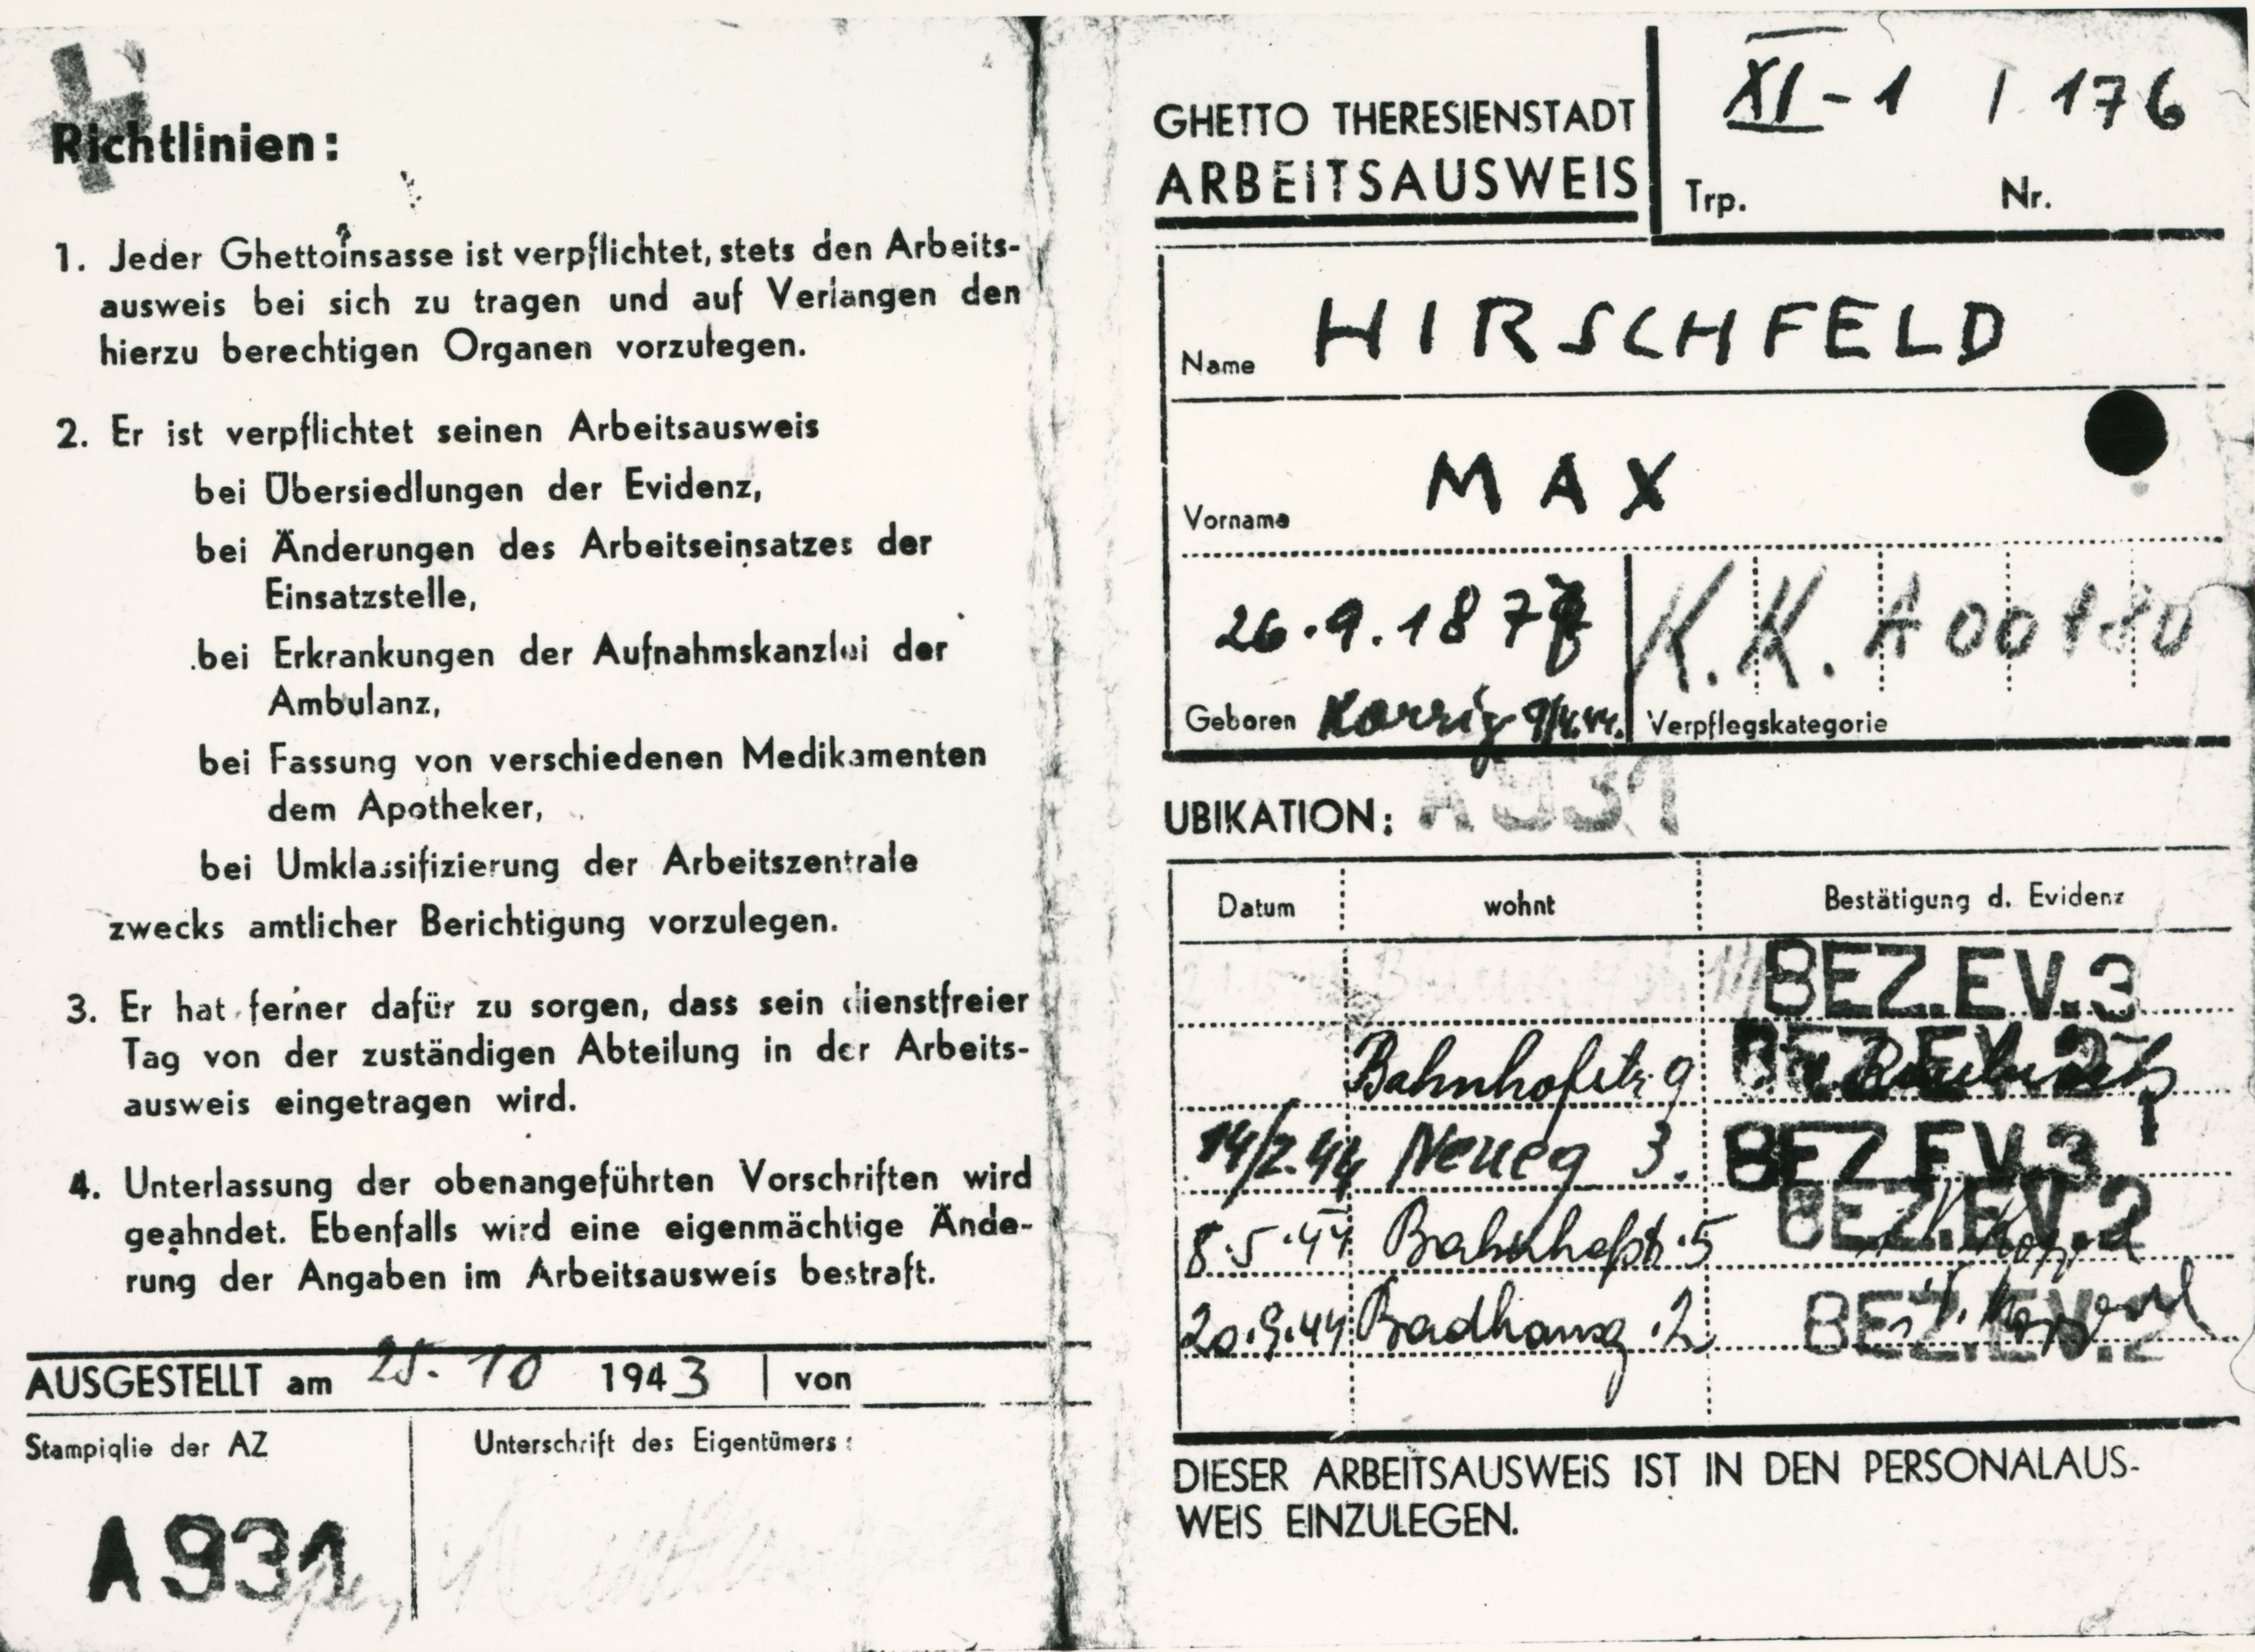 Richtlinien:
1. Jeder Ghettoinsasse ist verpflichtet, stets den Arbeits-
ausweis bei sich zu tragen und auf Verlangen den
hierzu berechtigen Organen vorzulegen.
2. Er ist verpflichtet seinen Arbeitsausweis
bei Übersiedlungen der Evidenz,
bei Änderungen des Arbeitseinsatzes der
Einsatzstelle,
bei Erkrankungen der Aufnahmskanzlei der
Ambulanz,
bei Fassung von verschiedenen Medikamenten
dem Apotheker,
bei Umklassifizierung der Arbeitszentrale
zwecks amtlicher Berichtigung vorzulegen.
3. Er hat ferner dafür zu sorgen, dass sein dienstfreier
Tag von der zuständigen Abteilung in der Arbeits-
ausweis eingetragen wird.
4. Unterlassung der obenangeführten Vorschriften wird
geahndet. Ebenfalls wird eine eigenmächtige Ände-
rung der Angaben im Arbeitsausweis bestraft.
AUSGESTELLT am 25. 10 1943 | von
Stampiglie der AZ
Unterschrift des Eigentümers:
A931
GHETTO THERESIENSTADT
ARBEITSAUSWEIS
XI-1 / 176
Trp. Nr.
Name HIRSCHFELD
Vorname MAX
26.9.187
Geboren
K.K. A00180
Verpflegskategorie
UBIKATION: A931
Datum wohnt Bestätigung d. Evidenz
BEZ.EV.3
Bahnhofstr 9 BEZ.EV.
14/2.44 Neueg 3. BEZ.EV.3
8.5.44 Bahnhofstr. 5 BEZ.EV.2
20.9.44 Badhausg. 2 BEZ.EV.2
DIESER ARBEITSAUSWEIS IST IN DEN PERSONALAUS-
WEIS EINZULEGEN.